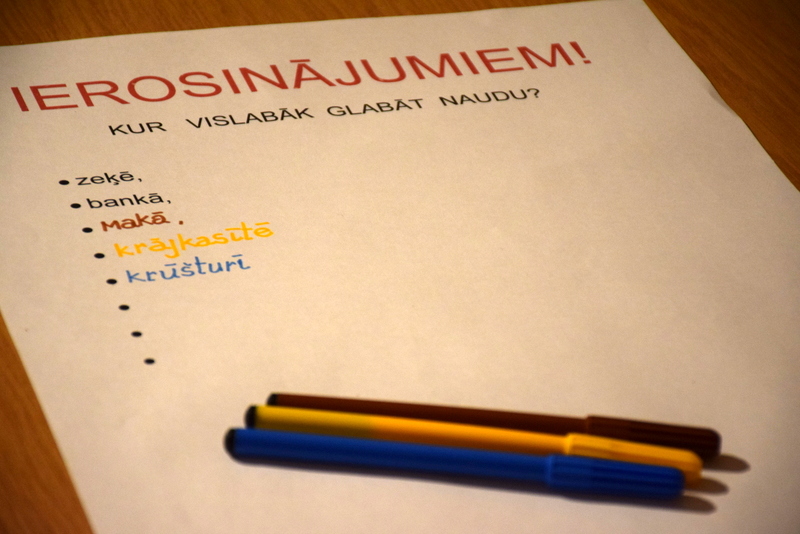 IEROSINĀJUMIEM!
KUR VISLABĀK GLABĀT NAUDU?
• zeķē,
• bankā,
• Makā,
• krājkasītē
• krūšturī
•
•
•